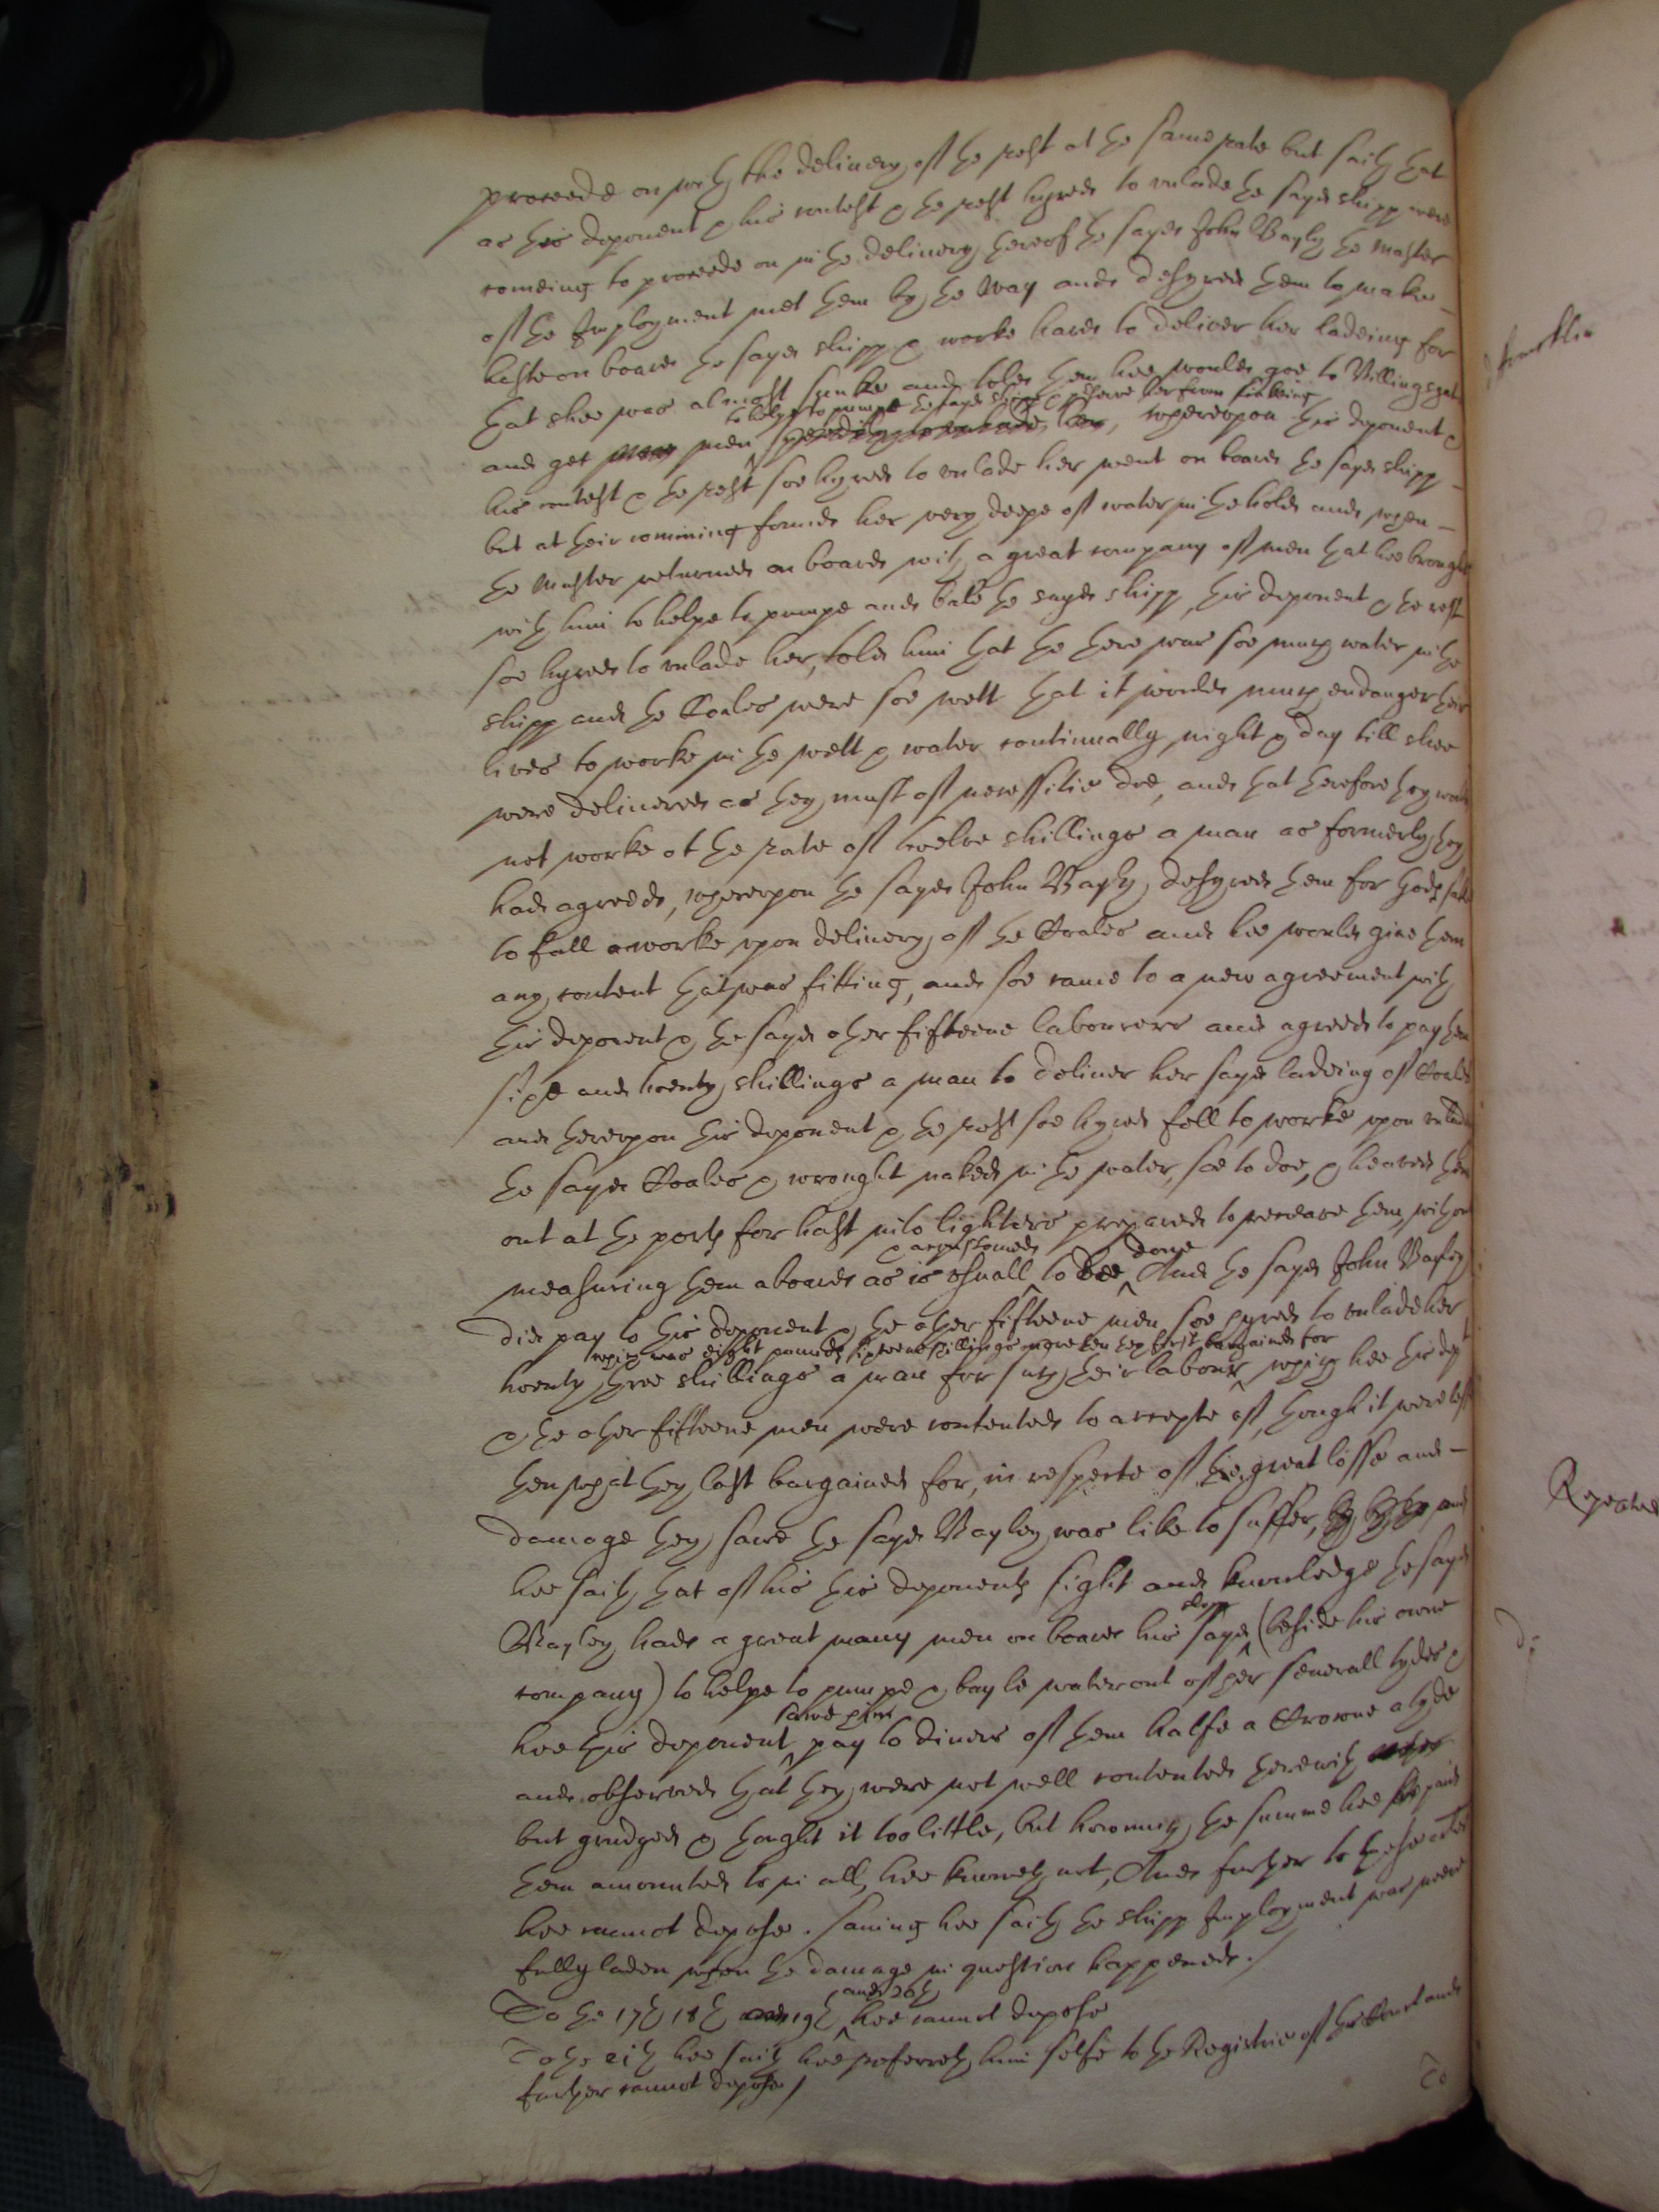 proceede on with the delivery of the rest at the same rate but saith that
as this deponent & his contest & the rest hyred to unlade the sayd shipp were
comeing to proceede on in the delivery thereof the sayd John Bayly the Master
of the Imployment met them by the way and desyred them to make
haste on board the sayd shipp & worke hard to deliver her ladeing for
that shee was almost sunke and told them hee would goe to Billingsgate
to helpe to pumpe the sayd shipp & preserve her from sinkeing
and get men speedily to unlade her, whereupon this deponent &
his contest & the rest soe hyred to unlade her went on board the sayd shipp
but at their comming found her very deepe of water in the hold and when
the Master returned on board with a great company of men that hee brought
with him to helpe to pumpe and bale the sayd shipp, this deponent & the rest
soe hyred to unlade her, told him that the there was soe much water in the
shipp and the Coales were soe wett that it would much endanger their
lives to worke in the wett & water continually night & day till shee
were delivered as they must of necessitie doe, and that therefore they would
not worke at the rate of twelve shillings a man as formerly they
had agreed, whereupon the sayd John Bayly desyred them for gods sake
to fall aworke upon delivery of the Coales and hee would give them
any content that was fitting, and soe came to a new agreement with
this deponent & the sayd other fifteene labourers and agreed to pay them
sixe and twenty shillings a man to deliver her sayd ladeing of Coales
and thereupon this deponent & the rest soe hyred fell to worke upon unladeing
the sayd Coales & wrought naked in the water, soe to doe, & heaved them
out at the ports for hast into lighters prepared to receave them, without
& accustomed done
measuring them aboard as is usuall to bee And the sayd John Bayley
did pay to this deponent & the other fifteene men soe hyred to unlade her
which was eight pounds sixteene shillings more then they first bargained for
twenty three shillings a man for such their labour which hee this dept
& the other fifteene men were contented to accepte of, though it were lesse
then what they last bargained for, in respecte of the great losse and
damage they sawe the sayd Bayley was like to suffer, and
hee saith that of his this deponents sight and knowledge the sayd
shipp
Bayley had a great many men on board his sayd (beside his owne
company) to helpe to pumpe & bayle water out of her severall tydes &
sawe him
hee this deponent pay to divers of them halfe a Crowne a tyde
and observed that they were not well contented therewith
but grudged & thought it too little, but howmuch the summe hee paid
them amounted to in all, hee knoweth not, And further to these articles
hee cannot depose. saving hee saith the shipp Imployment was neere
fully laden when the damage in question happened./
and 20th
To the 17th 18th 19th hee cannot depose
To the 21th hee saith hee referreth him selfe to the Registrie of this Court and
further cannot depose/
To
Repeated